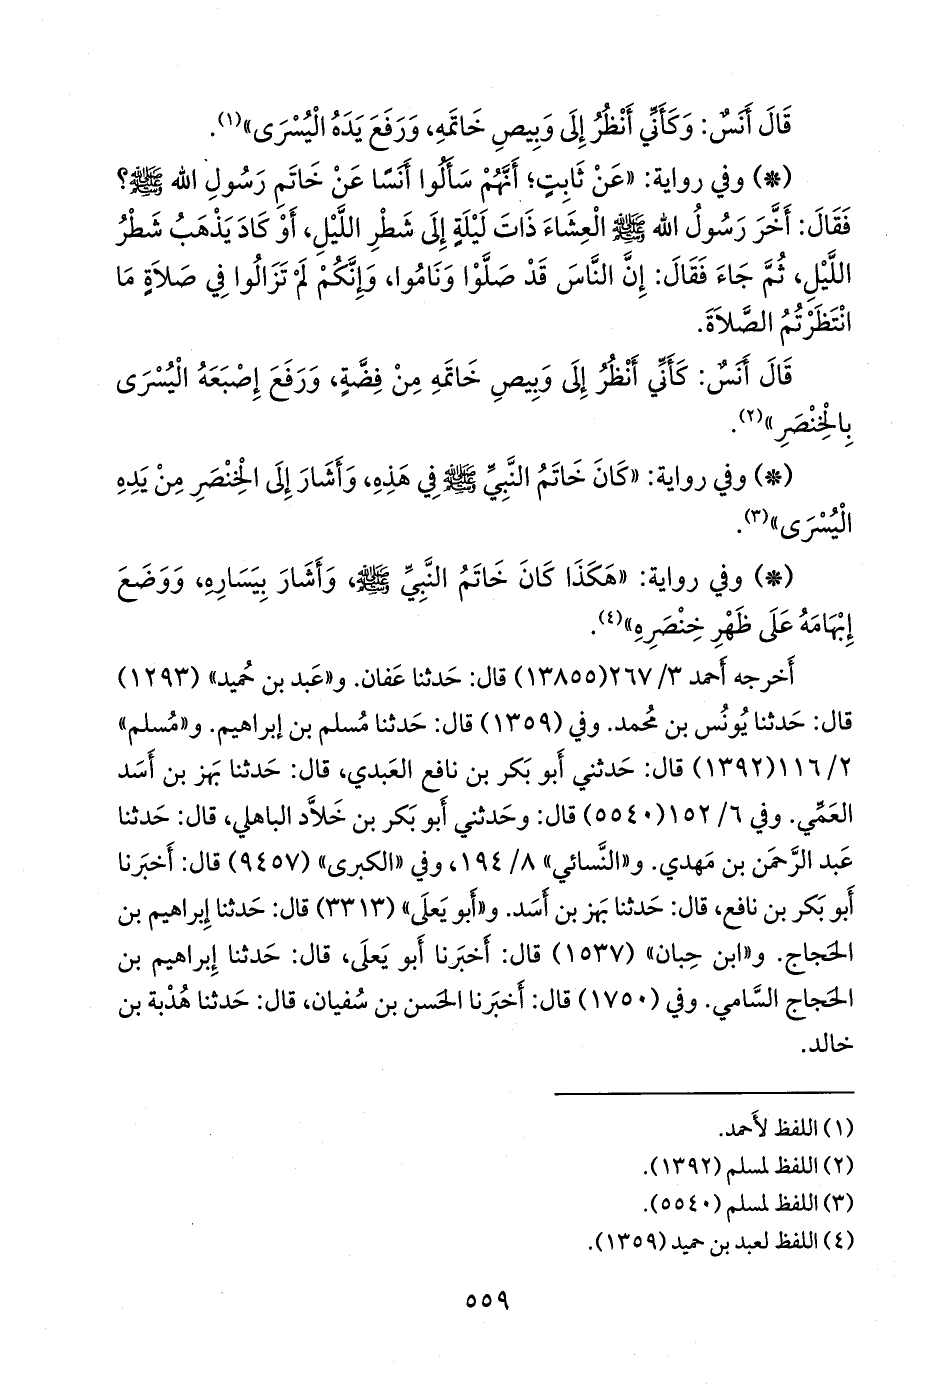 قَالَ أَنَسٌ: وَكَأَنِّي أَنْظُرُ إِلَى وَبِيصِ خَاتَمِهِ، وَرَفَعَ يَدَهُ الْيُسْرَى»(١).
(*) وفي رواية: «عَنْ ثَابِتٍ؛ أَنَّهُمْ سَأَلُوا أَنَسًا عَنْ خَاتَمِ رَسُولِ الله ﷺ؟
فَقَالَ: أَخَّرَ رَسُولُ الله ﷺ الْعِشَاءَ ذَاتَ لَيْلَةٍ إِلَى شَطْرِ اللَّيْلِ، أَوْ كَادَ يَذْهَبُ شَطْرُ
اللَّيْلِ، ثُمَّ جَاءَ فَقَالَ: إِنَّ النَّاسَ قَدْ صَلَّوْا وَنَامُوا، وَإِنَّكُمْ لَمْ تَزَالُوا فِي صَلاَةٍ مَا
انْتَظَرْتُمُ الصَّلاَةَ.
قَالَ أَنَسٌ: كَأَنِّي أَنْظُرُ إِلَى وَبِيصِ خَاتَمِهِ مِنْ فِضَّةٍ، وَرَفَعَ إِصْبَعَهُ الْيُسْرَى
بِالْخِنْصَرِ»(٢).
(*) وفي رواية: «كَانَ خَاتَمُ النَّبِيِّ ﷺ فِي هَذِهِ، وَأَشَارَ إِلَى الْخِنْصَرِ مِنْ يَدِهِ
الْيُسْرَى»(٣).
(*) وفي رواية: «هَكَذَا كَانَ خَاتَمُ النَّبِيِّ ﷺ، وَأَشَارَ بِيَسَارِهِ، وَوَضَعَ
إِبْهَامَهُ عَلَى ظَهْرِ خِنْصَرِهِ»(٤).
أَخرجه أَحمد ٣/ ٢٦٧(١٣٨٥٥) قال: حَدثنا عَفان. و«عَبد بن حُميد» (١٢٩٣)
قال: حَدثنا يُونُس بن مُحمد. وفي (١٣٥٩) قال: حَدثنا مُسلم بن إِبراهيم. و«مُسلم»
٢/ ١١٦(١٣٩٢) قال: حَدثني أَبو بَكر بن نافع العَبدي، قال: حَدثنا بَهز بن أَسَد
العَمِّي. وفي ٦/ ١٥٢(٥٥٤٠) قال: وحَدثني أَبو بَكر بن خَلاَّد الباهلي، قال: حَدثنا
عَبد الرَّحمَن بن مَهدي. و«النَّسائي» ٨/ ١٩٤، وفي «الكبرى» (٩٤٥٧) قال: أَخبَرنا
أَبو بَكر بن نافع، قال: حَدثنا بَهز بن أَسَد. و«أَبو يَعلَى» (٣٣١٣) قال: حَدثنا إِبراهيم بن
الحَجاج. و«ابن حِبان» (١٥٣٧) قال: أَخبَرنا أَبو يَعلَى، قال: حَدثنا إِبراهيم بن
الحَجاج السَّامي. وفي (١٧٥٠) قال: أَخبَرنا الحَسن بن سُفيان، قال: حَدثنا هُدْبة بن
خالد.
(١) اللفظ لأَحمد.
(٢) اللفظ لمسلم (١٣٩٢).
(٣) اللفظ لمسلم (٥٥٤٠).
(٤) اللفظ لعبد بن حميد (١٣٥٩).
٥٥٩